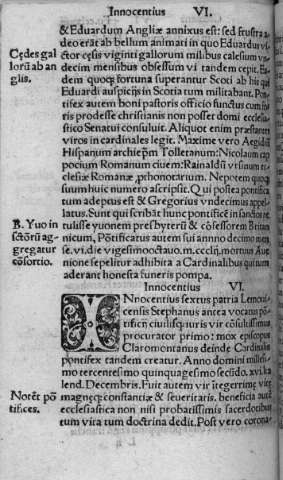 Innocentius VI.
& Eduardum Angliæ annixus est: sed frustra a
deo erāt ab bellum animati in quo Eduardus vi
ctor cęsis viginti gallorum milibus calesium vn
decim mensibus obsessum vi tandem cepit. Eo
dem quoqȝ fortuna superantur Scoti ab his qui
Eduardi auspicijs in Scotia tum militabant. Pon
tifex autem boni pastoris officio functus cum
ris prodesse christianis non posset domi ecclesia
stico Senatui consuluit. Aliquot enim præstantes
viros in cardinales legit. Maxime vero Aegidiū
Hispanum archiepm Tolletanum: Nicolaum
pocium Romanum ciuem: Rainaldū vrsinum
clesiæ Romanæ prhonotarium. Nepotem quoqȝ
suum huic numero ascripsit. Qui postea pontifica
tum adeptus est & Gregorius vndecimus appel
latus. Sunt qui scribāt hunc pontificē in sanctos re
tulisse yuonem presbyterū & cōfessorem Britan
nicum, Pōtificatus autem sui annno decimo men
se. vi. die vigesimooctauo. m.ccclij. mortuus Aui
nione sepelitur adhibita a Cardinalibus qui tum
aderant honesta funeris pompa.
Innocentius VI.
INnocentius sextus patria Lemoui
censis Stephanus antea vocatus pō
tificij ciuilisqȝ iuris vir cōsultissimus
procurator primo: mox episcopus
Claromontanus deinde Cardinalis
pontifex tandem creatur. Anno domini millesi
mo tercentesimo quinquagesimo secūdo. xvi. ka
lend. Decembris. Fuit autem vir itegerrimę vitę
magnęqȝ constantiæ & seueritatis. beneficia autē
ecclesiastica non nisi probatissimis sacerdotibus
tum vita tum doctrina dedit. Post vero corona
Cędes gal
lorū ab an
glis.
B. Yuo in
sctōrū ag
gregatur
cōsortio.
Notēt pō
tifices.